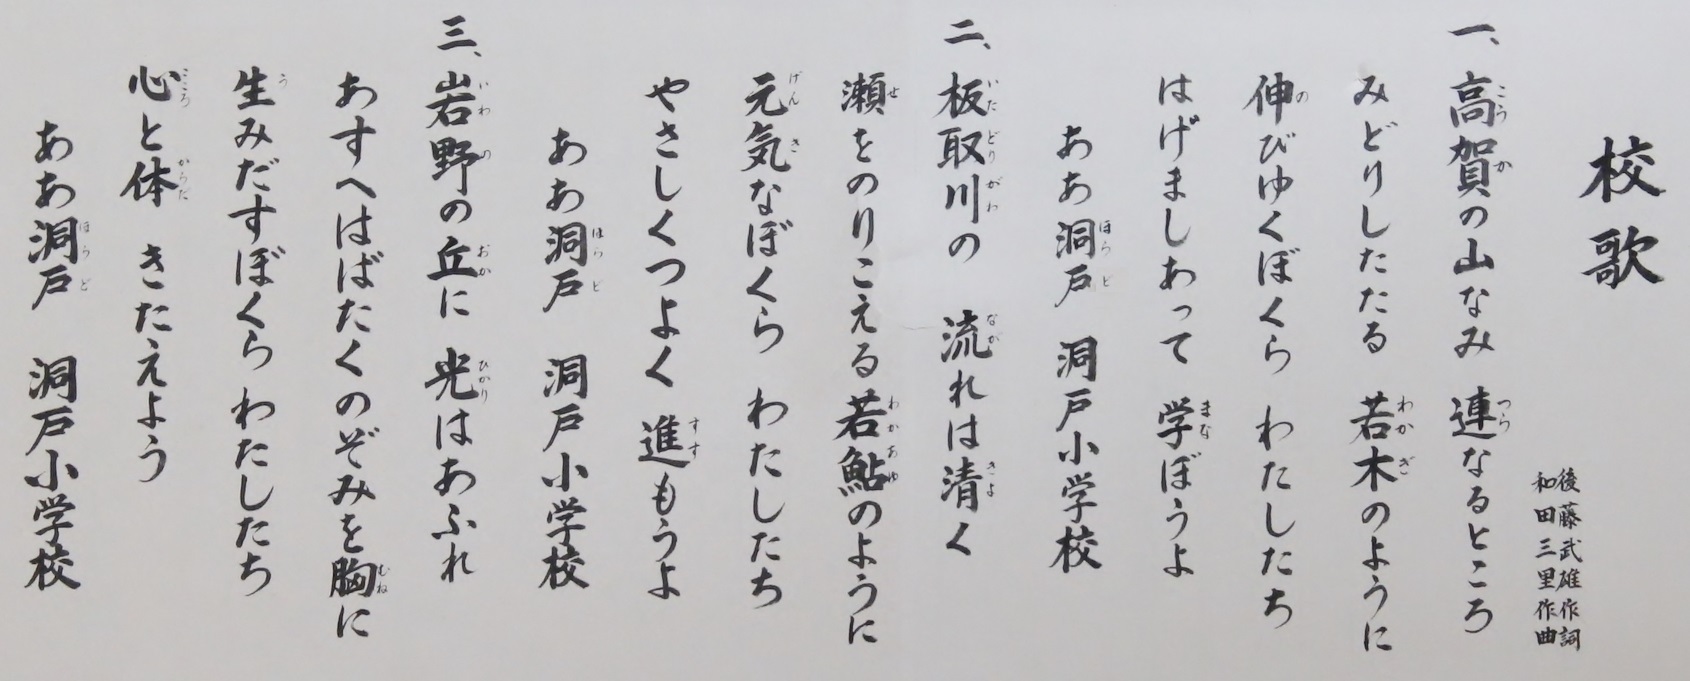 校歌
後藤武雄作詞
和田三里作曲
一、高賀の山なみ 連なるところ
みどりしたたる 若木のように
伸びゆくぼくら わたしたち
はげましあって 学ぼうよ
ああ洞戸 洞戸小学校
二、板取川の 流れは清く
瀬をのりこえる 若鮎のように
元気なぼくら わたしたち
やさしくつよく 進もうよ
ああ洞戸 洞戸小学校
三、岩野の丘に 光はあふれ
あすへはばたくのぞみを胸に
生みだすぼくら わたしたち
心と体 きたえよう
ああ洞戸 洞戸小学校